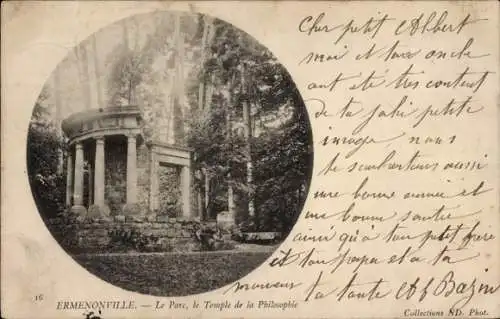 Cher petit Albert
moi et ton oncle
ont été très content
de ta jolie petite
image. nous
te souhaitons aussi
une bonne année et
une bonne santée
ainsi qu'à ton petit frère
et ton papa et a ta
maman ta tante A Bazin
16
ERMENONVILLE. — Le Parc, le Temple de la Philosophie
Collections ND. Phot.